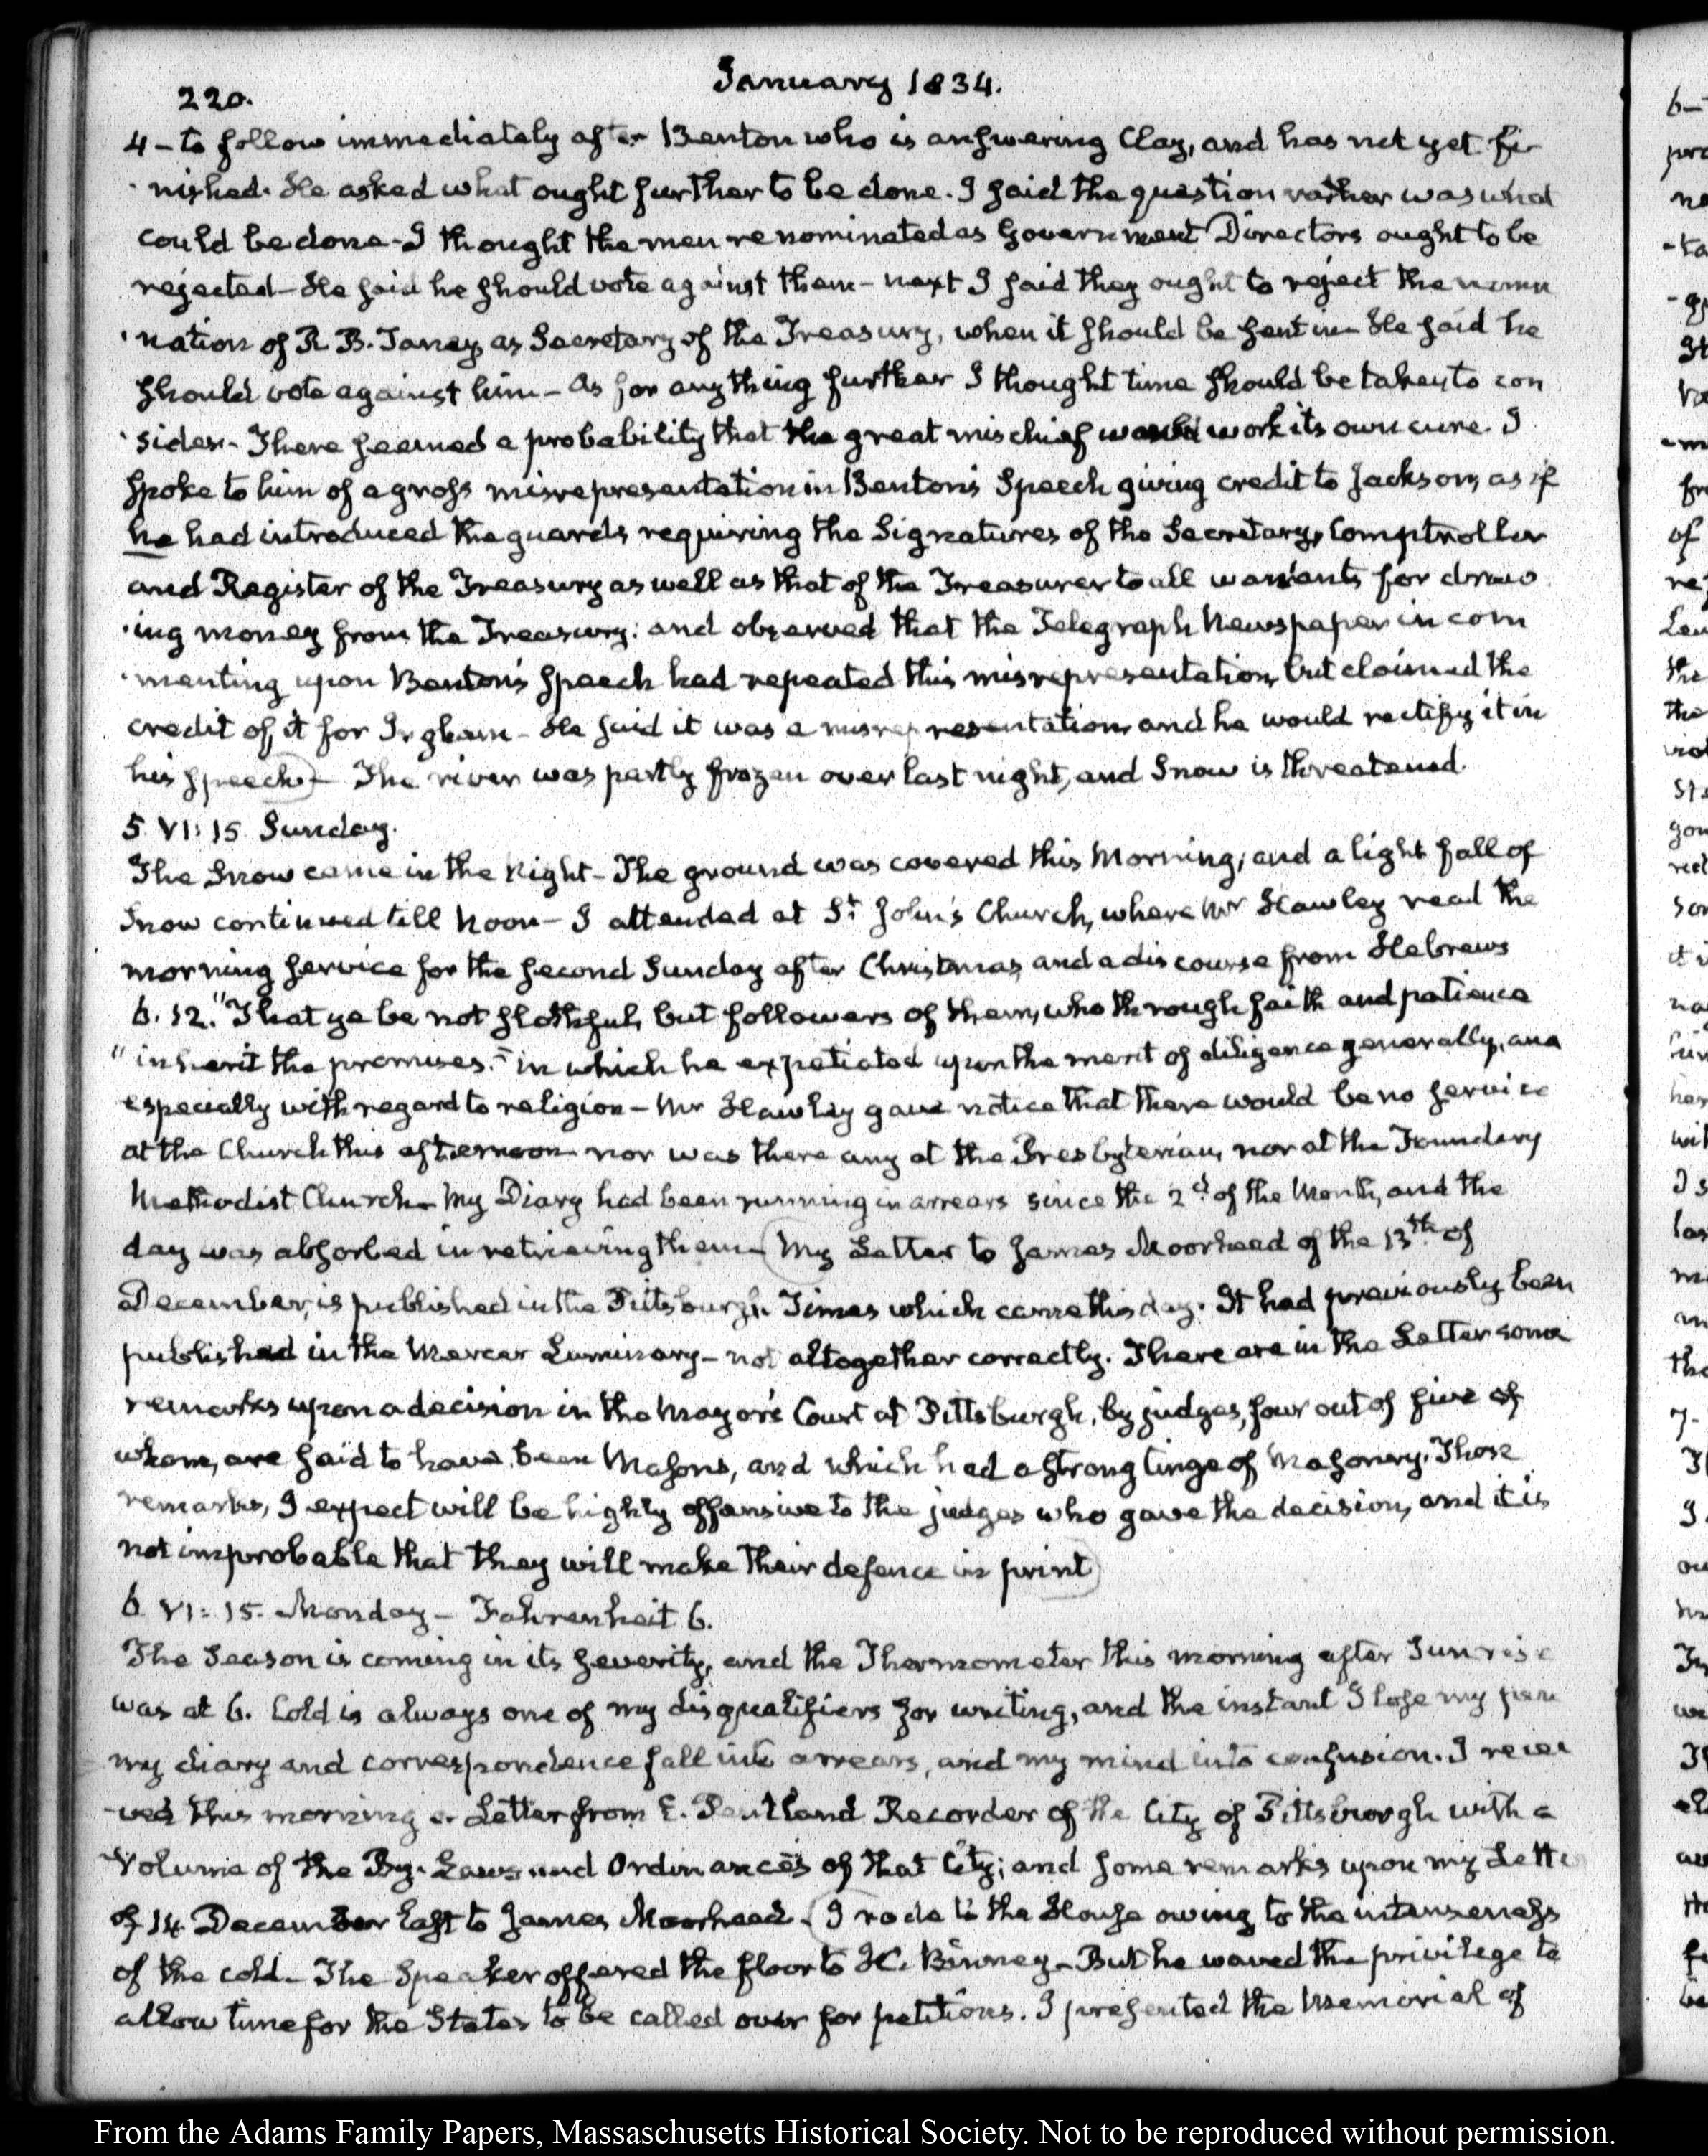 220.
January 1834.
4 - to follow immediately after Benton who is answering Clay, and has not yet fi
-nished. He asked what ought further to be done. I said the question rather was what
could be done - I thought the men renominated as Government Directors ought to be
rejected - He said he should vote against them - next I said they ought to reject the nomi
-nation of R. B. Taney as Secretary of the Treasury, when it should be sent in - He said he
should vote against him - As for any thing further I thought time should be taken to con
-sider - There seemed a probability that the great mischief would work its own cure. I
spoke to him of a gross misrepresentation in Benton's Speech giving credit to Jackson, as if
he had introduced the guards, requiring the Signatures of the Secretary, Comptroller
and Register of the Treasury as well as that of the Treasurer to all warrants for draw
-ing money from the Treasury: and observed that the Telegraph Newspaper in com
-menting upon Benton's speech had repeated this misrepresentation, but claimed the
credit of it for Ingham - He said it was a misrepresentation, and he would rectify it in
his speech) - The river was partly frozen over last night, and Snow is threatened.
5. VI: 15. Sunday.
The Snow came in the Night - The ground was covered this Morning, and a light fall of
Snow continued till Noon - I attended at St. John's Church, where Mr Hawley read the
morning service for the second Sunday after Christmas, and a discourse from Hebrews
6. 12. "That ye be not slothful, but followers of them, who through faith and patience
"inherit the promises." in which he expatiated upon the merit of diligence generally, and
especially with regard to religion - Mr Hawley gave notice that there would be no service
at the Church this afternoon nor was there any at the Presbyterian, nor at the Foundery
Methodist Church - My Diary had been running in arrears since the 2d. of the Month, and the
day was absorbed in retrieving them - (My Letter to James Moorhead of the 13th. of
December, is published in the Pittsburgh Times which came this day. It had previously been
published in the Mercer Luminary - not altogether correctly. There are in the Letter some
remarks upon a decision in the Mayor's Court at Pittsburgh, by judges, four out of five of
whom, are said to have been Masons, and which had a strong tinge of Masonry. Those
remarks, I expect will be highly offensive to the judges who gave the decision, and it is
not improbable that they will make their defence in print)
6. VI: 15. Monday - Fahrenheit 6.
The Season is coming in its severity, and the Thermometer this morning after Sunrise
was at 6. Cold is always one of my disqualifiers for writing, and the instant I lose my pen
my diary and correspondence fall into arrears, and my mind into confusion. I recei
-ved this morning a Letter from E. Pentland Recorder of the City of Pittsburgh with a
Volume of the By-Laws and Ordinances of that City; and some remarks upon my Letter
of 14. December last to James Moorhead. (I rode to the House owing to the intenseness
of the cold - The Speaker offered the floor to H. Binney - But he waved the privilege to
allow time for the States to be called over for petitions. I presented the Memorial of
From the Adams Family Papers, Massachusetts Historical Society. Not to be reproduced without permission.